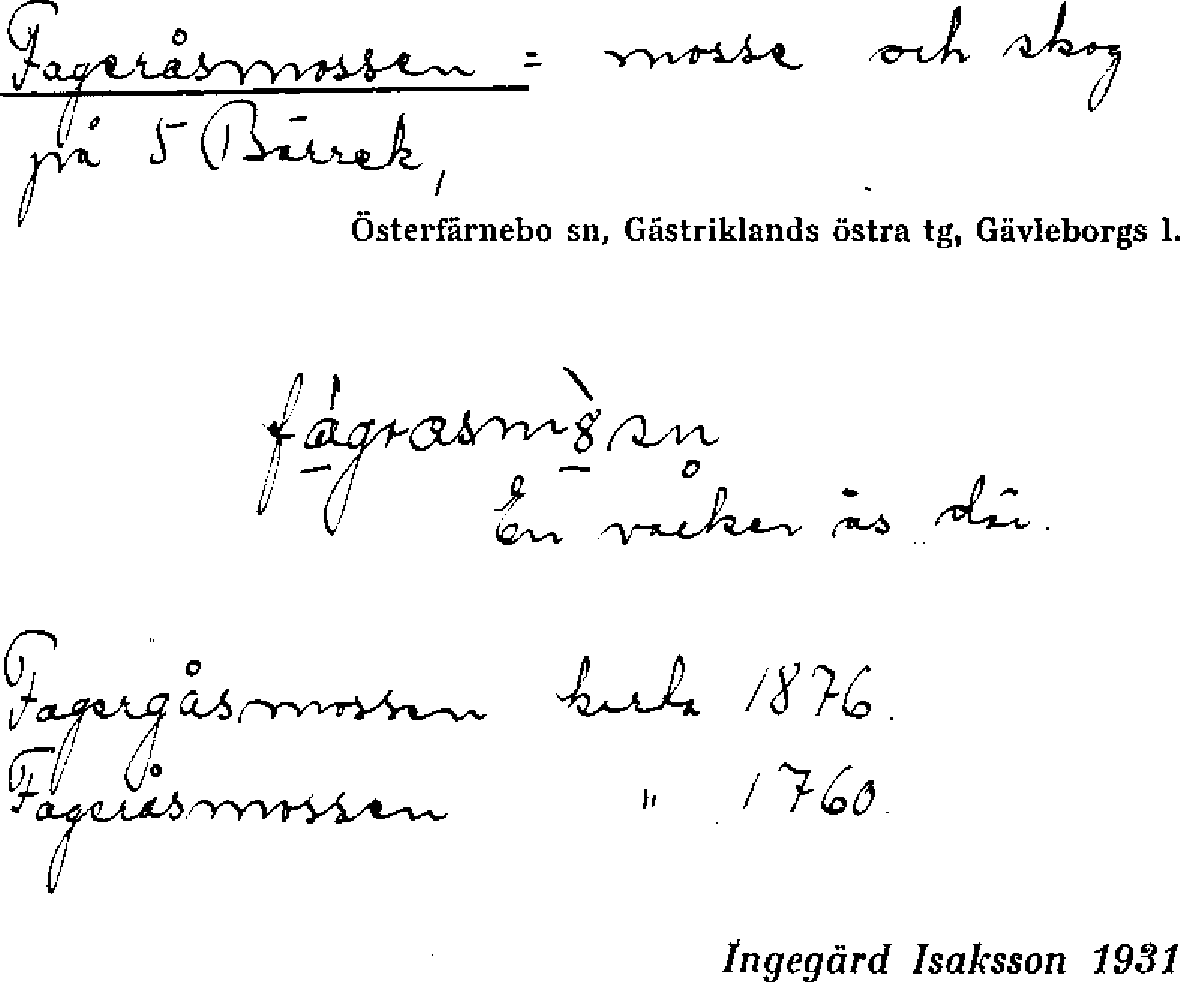 Fageråsmossen = mosse och skog
på 5 Bärrek,
Österfärnebo sn, Gästriklands östra tg, Gävleborgs l.
En vacker ås där.
Fagergåsmossen karta 1876.
Fageråsmossen " 1760.
Ingegärd Isaksson 1931